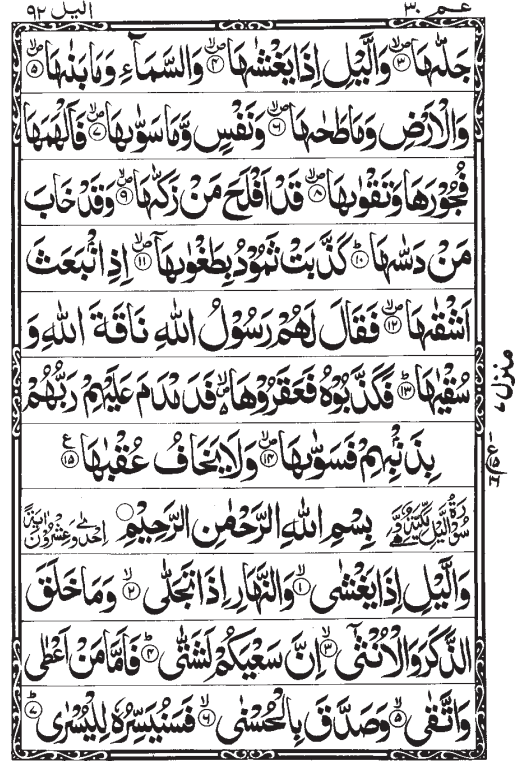 عم ٣٠ اليل ٩٢
جَلّٰىهَا ۝٣ وَالَّيْلِ اِذَا يَغْشٰىهَا ۝٤ وَالسَّمَآءِ وَمَا بَنٰىهَا ۝٥
وَالْاَرْضِ وَمَا طَحٰىهَا ۝٦ وَنَفْسٍ وَّمَا سَوّٰىهَا ۝٧ فَاَلْهَمَهَا
فُجُوْرَهَا وَتَقْوٰىهَا ۝٨ قَدْ اَفْلَحَ مَنْ زَكّٰىهَا ۝٩ وَقَدْ خَابَ
مَنْ دَسّٰىهَا ۝١٠ كَذَّبَتْ ثَمُوْدُ بِطَغْوٰىهَآ ۝١١ اِذِ انْۢبَعَثَ
اَشْقٰىهَا ۝١٢ فَقَالَ لَهُمْ رَسُوْلُ اللّٰهِ نَاقَةَ اللّٰهِ وَ
سُقْيٰهَا ۝١٣ فَكَذَّبُوْهُ فَعَقَرُوْهَا فَدَمْدَمَ عَلَيْهِمْ رَبُّهُمْ
بِذَنْۢبِهِمْ فَسَوّٰىهَا ۝١٤ وَلَا يَخَافُ عُقْبٰهَا ۝١٥
سُوْرَةُ الَّيْلِ مَكِّيَّةٌ وَّهِيَ بِسْمِ اللّٰهِ الرَّحْمٰنِ الرَّحِيْمِ اِحْدٰى وَعِشْرُوْنَ اٰيَةً
وَالَّيْلِ اِذَا يَغْشٰى ۝١ وَالنَّهَارِ اِذَا تَجَلّٰى ۝٢ وَمَا خَلَقَ
الذَّكَرَ وَالْاُنْثٰٓى ۝٣ اِنَّ سَعْيَكُمْ لَشَتّٰى ۝٤ فَاَمَّا مَنْ اَعْطٰى
وَاتَّقٰى ۝٥ وَصَدَّقَ بِالْحُسْنٰى ۝٦ فَسَنُيَسِّرُهٗ لِلْيُسْرٰى ۝٧
منزل ٧